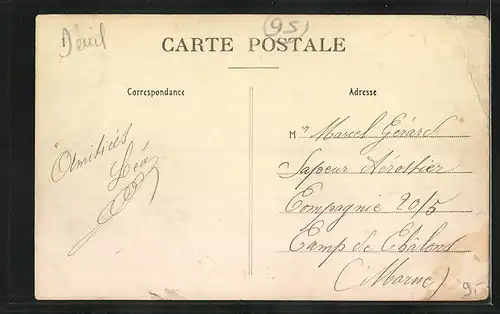 Deuil
(95)
CARTE POSTALE
Correspondance
Adresse
Amitiés
Léa
Mr Marcel Gérard
Sapeur Aérostier
Compagnie 20/5
Camp de Châlons
(Marne)
9.-